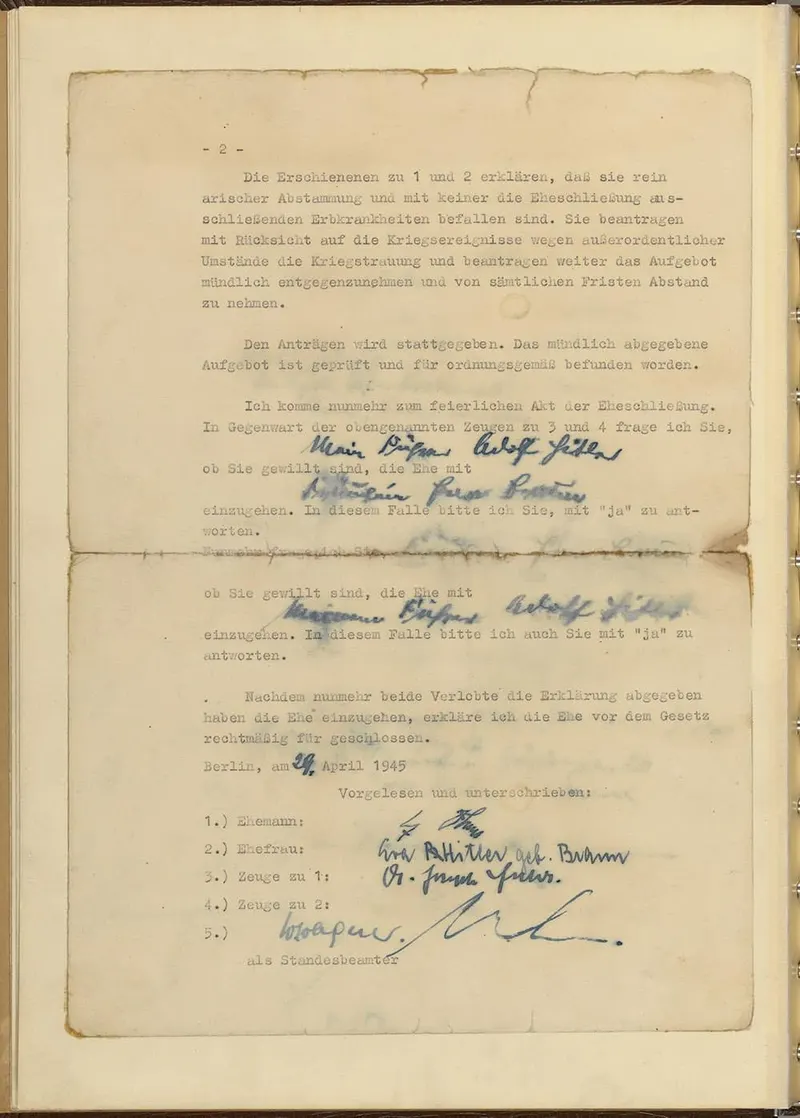 - 2 -
Die Erschienenen zu 1 und 2 erklären, daß sie rein
arischer Abstammung und mit keiner die Eheschließung aus-
schließenden Erbkrankheiten befallen sind. Sie beantragen
mit Rücksicht auf die Kriegsereignisse wegen außerordentlicher
Umstände die Kriegstrauung und beantragen weiter das Aufgebot
mündlich entgegenzunehmen und von sämtlichen Fristen Abstand
zu nehmen.
Den Anträgen wird stattgegeben. Das mündlich abgegebene
Aufgebot ist geprüft und für ordnungsgemäß befunden worden.
Ich komme nunmehr zum feierlichen Akt der Eheschließung.
In Gegenwart der obengenannten Zeugen zu 3 und 4 frage ich Sie,
Mein Führer Adolf Hitler
ob Sie gewillt sind, die Ehe mit
Fräulein Eva Braun
einzugehen. In diesem Falle bitte ich Sie, mit "ja" zu ant-
worten.
ob Sie gewillt sind, die Ehe mit
Führer Adolf Hitler
einzugehen. In diesem Falle bitte ich auch Sie mit "ja" zu
antworten.
Nachdem nunmehr beide Verlobte die Erklärung abgegeben
haben die Ehe einzugehen, erkläre ich die Ehe vor dem Gesetz
rechtmäßig für geschlossen.
Berlin, am 29. April 1945
Vorgelesen und unterschrieben:
1.) Ehemann:
2.) Ehefrau: Eva B Hitler geb. Braun
3.) Zeuge zu 1: Dr.
4.) Zeuge zu 2:
5.) Waagner.
als Standesbeamter